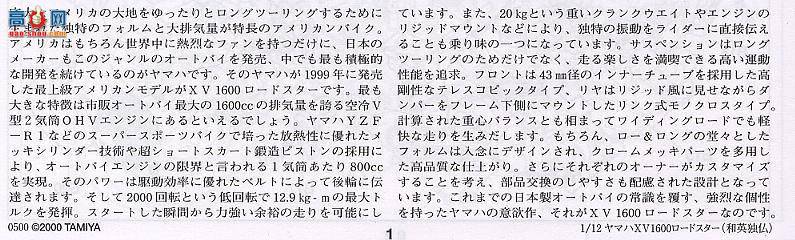 高网
gao-shou.com
メリカの大地をゆったりとロングツーリングするために
独特のフォルムと大排気量が特長のアメリカンバイク。
アメリカはもちろん世界中に熱烈なファンを持つだけに、日本の
メーカーもこのジャンルのオートバイを発売、中でも最も積極的
な開発を続けているのがヤマハです。そのヤマハが1999年に発売
した最上級アメリカンモデルがＸＶ1600ロードスターです。最も
大きな特徴は市販オートバイ最大の1600ccの排気量を誇る空冷Ｖ
型２気筒ＯＨＶエンジンにあるといえるでしょう。ヤマハＹＺＦ
－Ｒ１などのスーパースポーツバイクで培った放熱性に優れたメ
ッキシリンダー技術や超ショートスカート鍛造ピストンの採用に
より、オートバイエンジンの限界と言われる１気筒あたり800cc
を実現。そのパワーは駆動効率に優れたベルトによって後輪に伝
達されます。そして2000回転という低回転で12.9kg-mの最大ト
ルクを発揮。スタートした瞬間から力強い余裕の走りを可能にし
ています。また、20kgという重いクランクウエイトやエンジンの
リジッドマウントなどにより、独特の振動をライダーに直接伝え
ることも乗り味の一つになっています。サスペンションはロング
ツーリングのためだけでなく、走る楽しさを満喫できる高い運動
性能を追求。フロントは43㎜径のインナーチューブを採用した高
剛性なテレスコピックタイプ、リヤはリジッド風に見せながらダ
ンパーをフレーム下側にマウントしたリンク式モノクロスタイプ。
計算された重心バランスとも相まってワイディングロードでも軽
快な走りを生みだします。もちろん、ロー＆ロングの堂々とした
フォルムは入念にデザインされ、クロームメッキパーツを多用し
た高品質な仕上がり。さらにそれぞれのオーナーがカスタマイズ
することを考え、部品交換のしやすさも配慮された設計となって
います。これまでの日本製オートバイの常識を覆す、強烈な個性
を持ったヤマハの意欲作、それがＸＶ1600ロードスターなのです。
0500 ©2000 TAMIYA
1
1/12 ヤマハXV1600ロードスター（和英独仏）